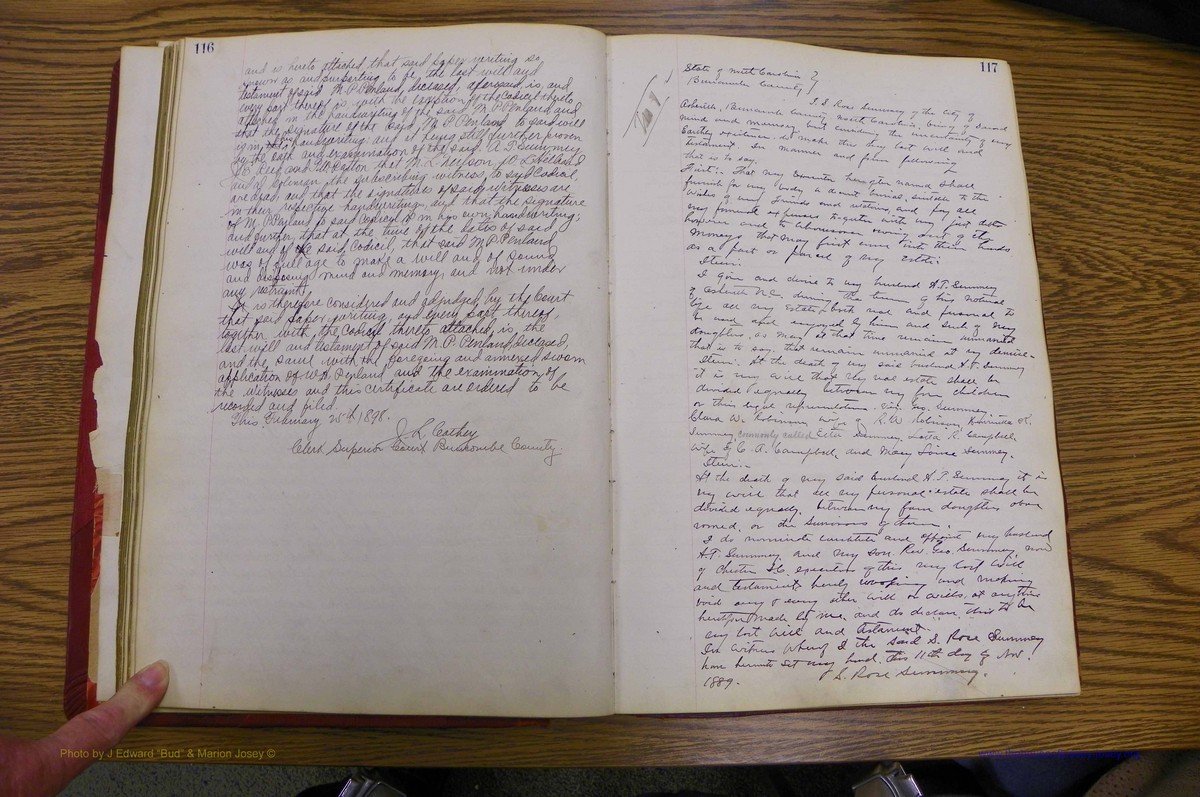 116
and is hereto attached, that said paper writing so
shown as and purporting to be the last will and
testament of said M. P. Penland, deceased, aforesaid, is, and
every part thereof is with the exception of the Codicil thereto
attached in the handwriting of the said M. P. Penland and
that the signature of the said M. P. Penland to said will
is in his handwriting and it being still further proven
by the oath and examination of the said A. T. Summey,
and W. W. that M.
and the subscribing witness to said Codicil,
are dead, and that the signatures of said witnesses are
in their respective handwritings, and that the signature
of M. P. Penland to said Codicil is in his own handwriting;
and further, that at the time of the dates of said
will and of the said Codicil, that said M. P. Penland
was of full age to make a will and of sound
and disposing mind and memory, and not under
any restraint.
It is therefore considered and adjudged by the Court
that said paper writing, and every part thereof,
together with the Codicil thereto attached, is, the
last will and testament of said M. P. Penland, deceased,
and the same with the foregoing and annexed sworn
application of W. H. Penland and the examination of
the witnesses and this certificate are ordered to be
recorded and filed.
This February 25th 1898.
J. L. Cathey
Clerk Superior Court Buncombe County.
117
State of North Carolina }
Buncombe County }
I, S. Rose Summey of the City of
Asheville, Buncombe County, North Carolina, being of sound
mind and memory, but considering the uncertainty of my
Earthly existence, do make this my last will and
testament. In manner and form following
that is to say.
First:- That my Executor hereafter named shall
furnish for my body a decent burial, suitable to the
wishes of my friends and relatives and pay all
my funeral expenses together with my just debts
however and to whomsoever owing out of the
moneys that may first come into their hands
as a part or parcel of my estate.
Item:
I give and devise to my husband A. T. Summey
of Asheville N.C. during the term of his natural
life all my estate, both real and personal to
be used and enjoyed by him and such of my
daughters, as may at that time remain unmarried
that is to say, that remain unmarried at my demise-
Item:- At the death of my said husband A. T. Summey
it is my will that my real estate shall be
divided equally between my five children
or their legal representatives. Viz. Geo. Summey,
Clara W. Robinson, wife of R. W. Robinson, K.
Summey, commonly called Summey, R. Campbell,
wife of C. A. Campbell, and Mary Louise Summey.
Item:-
At the death of my said husband A. T. Summey it is
my will that all my personal estate shall be
divided equally, between my four daughters above
named, or the survivors of them.
I do nominate constitute and appoint my husband
A. T. Summey, and my son Rev. Geo. Summey, now
of Chester S.C. executors of this my last will
and testament, hereby revoking and making
void any & every other will or wills, at anytime
heretofore made by me, and do declare this to be
my last will and testament.
In witness whereof I the said S. Rose Summey
have hereunto set my hand, this 11th day of Nov.
1889.
S. Rose Summey.
Photo by J Edward "Bud" & Marion Josey ©